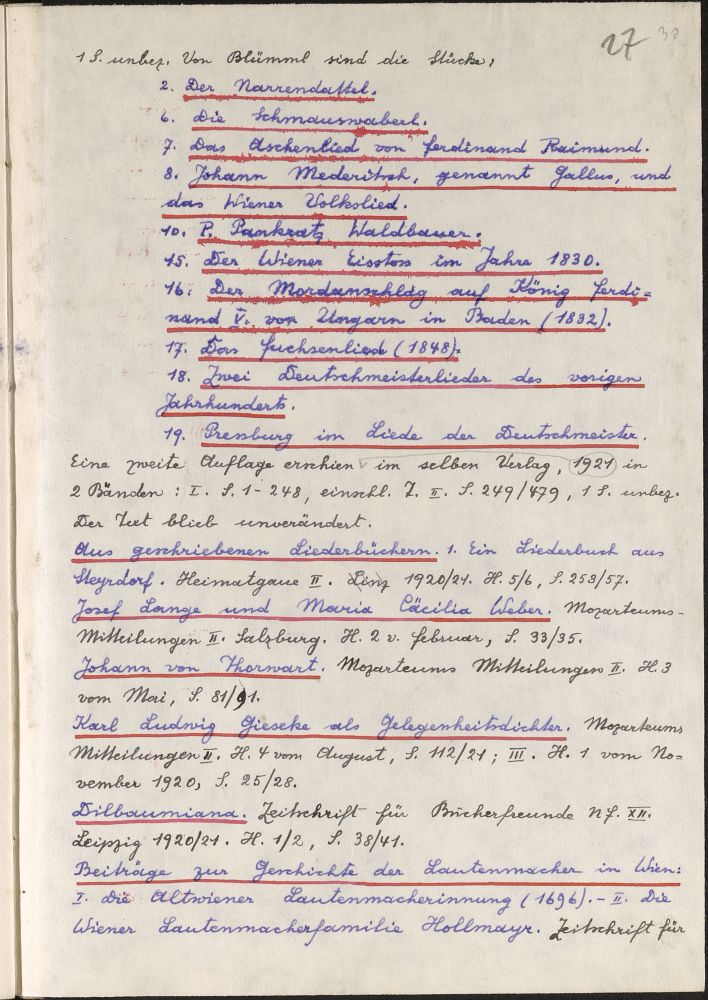 27 30
1 S. unbez. Von Blümml sind die Stücke:
2. Der Narrendattel.
6. Die Schmauswaberl.
7. Das Aschenlied von Ferdinand Raimund.
8. Johann Mederitsch, genannt Gallus, und
das Wiener Volkslied.
10. P. Pankratz Waldbauer.
15. Der Wiener Eisstoss im Jahre 1830.
16. Der Mordanschlag auf König Ferdi=
nand V. von Ungarn in Baden (1832).
17. Das Fuchsenlied (1848).
18. Zwei Deutschmeisterlieder des vorigen
Jahrhunderts.
19. Pressburg im Liede der Deutschmeister.
Eine zweite Auflage erschien im selben Verlag, 1921 in
2 Bänden: I. S. 1-248, einschl. Z. II. S. 249/479, 1 S. unbez.
Der Text blieb unverändert.
Aus geschriebenen Liederbüchern. 1. Ein Liederbuch aus
Steyrdorf. Heimatgaue II. Linz 1920/21. H. 5/6, S. 253/57.
Josef Lange und Maria Cäcilia Weber. Mozarteums-
Mitteilungen II. Salzburg. H. 2 v. Februar, S. 33/35.
Johann von Thorwart. Mozarteums Mitteilungen II. H. 3
vom Mai, S. 81/91.
Karl Ludwig Gieseke als Gelegenheitsdichter. Mozarteums
Mitteilungen II. H. 4 vom August, S. 112/21; III. H. 1 vom No=
vember 1920, S. 25/28.
Dilbaumiana. Zeitschrift für Bücherfreunde N.F. XII.
Leipzig 1920/21. H. 1/2, S. 38/41.
Beiträge zur Geschichte der Lautenmacher in Wien:
I. Die Altwiener Lautenmacherinnung (1696). - II. Die
Wiener Lautenmacherfamilie Hollmayr. Zeitschrift für